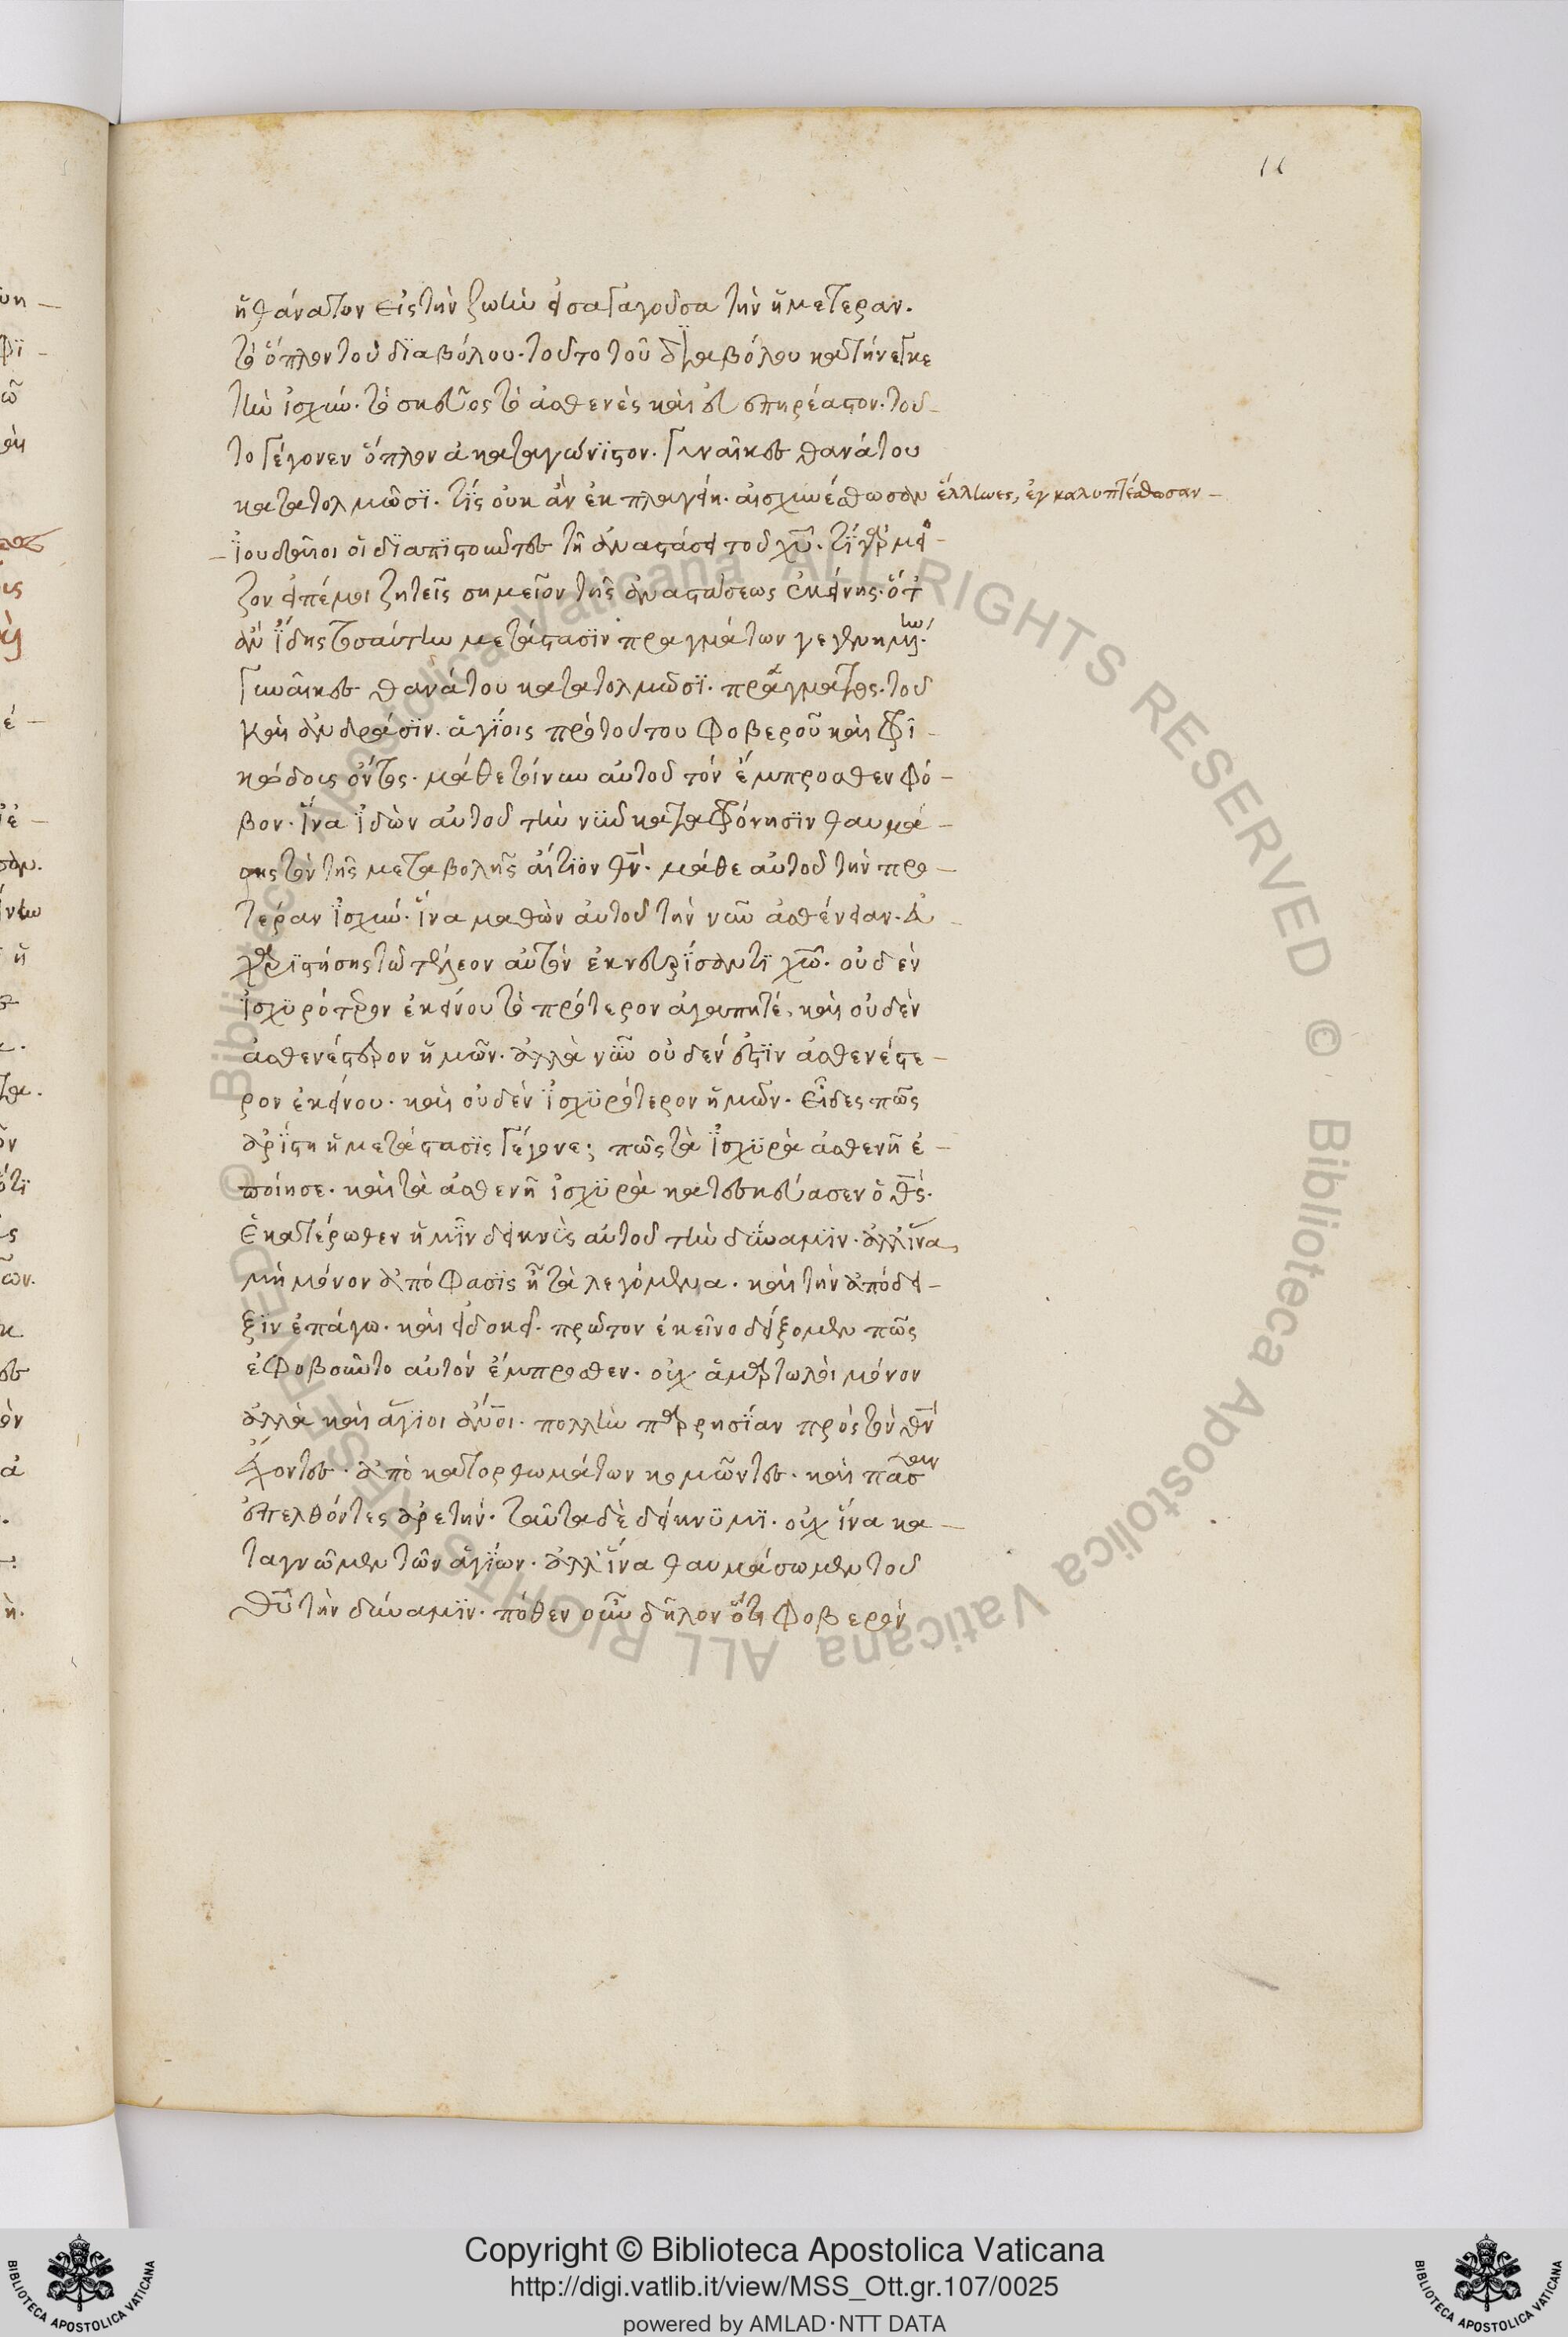 11
ἢ θάνατον εἰς τὴν ζωὴν εἰσαγαγοῦσα τὴν ἡμετέραν.
τὸ ὅπλον τοῦ διαβόλου. τοῦτο τοῦ διαβόλου κατήνεγκε
τὴν ἰσχύν. τὸ σκεῦος τὸ ἀσθενὲς καὶ εὐεπηρέαστον. τοῦ
το γέγονεν ὅπλον ἀκαταγώνιστον. γυναῖκες θανάτου
κατατολμῶσι. τίς οὐκ ἂν ἐκπλαγείη. αἰσχυνέσθωσαν ἕλληνες, ἐγκαλυπτέσθωσαν
ἰουδαῖοι οἱ διαπιστοῦντες τῇ ἀναστάσει τοῦ χῦ. τί γὰρ μεῖ
ζον εἰπέ μοι ζητεῖς σημεῖον τῆς ἀναστάσεως ἐκείνης. ὅτ
ἂν ἴδης τοσαύτην μετάστασιν πραγμάτων γεγενημένην.
γυναῖκες θανάτου κατατολμῶσι. πράγματος. τοῦ
καὶ ἀνδράσιν. ἁγίοις πρὸ τούτου φοβεροῦ καὶ φρι
κώδους ὄντος. μάθε τοίνυν αὐτοῦ τὸν ἔμπροσθεν φό
βον. ἵνα ἰδὼν αὐτοῦ τὴν νῦν καταφρόνησιν θαυμά
σῃς τὸν τῆς μεταβολῆς αἴτιον θν. μάθε αὐτοῦ τὴν προ
τέραν ἰσχύν. ἵνα μαθὼν αὐτοῦ τὴν νῦν ἀσθένειαν. εὐ
χαριστήσῃς τῷ τέλεον αὐτὸν ἐκνευρίσαντι χῶ. οὐδὲν
ἰσχυρότερον ἐκείνου τὸ πρότερον ἀγαπητέ, καὶ οὐδὲν
ἀσθενέστερον ἡμῶν. ἀλλὰ νῦν οὐδέν ἐστιν ἀσθενέστε
ρον ἐκείνου. καὶ οὐδὲν ἰσχυρότερον ἡμῶν. εἶδες πῶς
ἀρίστη ἡ μετάστασις γέγονε; πῶς τὰ ἰσχυρὰ ἀσθενῆ ἐ
ποίησε. καὶ τὰ ἀσθενῆ ἰσχυρὰ κατεσκεύασεν ὁ θς.
ἑκατέρωθεν ἡμῖν δεικνὺς αὐτοῦ τὴν δύναμιν. ἀλλ' ἵνα
μὴ μόνον ἀπόφασις ᾖ τὰ λεγόμενα. καὶ τὴν ἀπόδει
ξιν ἐπάγω. καὶ εἰ δοκεῖ. πρῶτον ἐκεῖνο δείξομεν πῶς
ἐφοβοῦντο αὐτὸν ἔμπροσθεν. οὐχ ἁμαρτωλοὶ μόνον
ἀλλὰ καὶ ἅγιοι ἄνοι. πολλὴν παρρησίαν πρὸς τὸν θν
ἔχοντες. ἀπὸ κατορθωμάτων κομῶντες. καὶ πᾶσαν
ἐπελθόντες ἀρετήν. ταῦτα δὲ δείκνυμι. οὐχ ἵνα κα
ταγνῶμεν τῶν ἁγίων. ἀλλ' ἵνα θαυμάσωμεν τοῦ
θῦ τὴν δύναμιν. πόθεν οὖν δῆλον ὅτι φοβερὸν
Copyright © Biblioteca Apostolica Vaticana
http://digi.vatlib.it/view/MSS_Ott.gr.107/0025
powered by AMLAD·NTT DATA